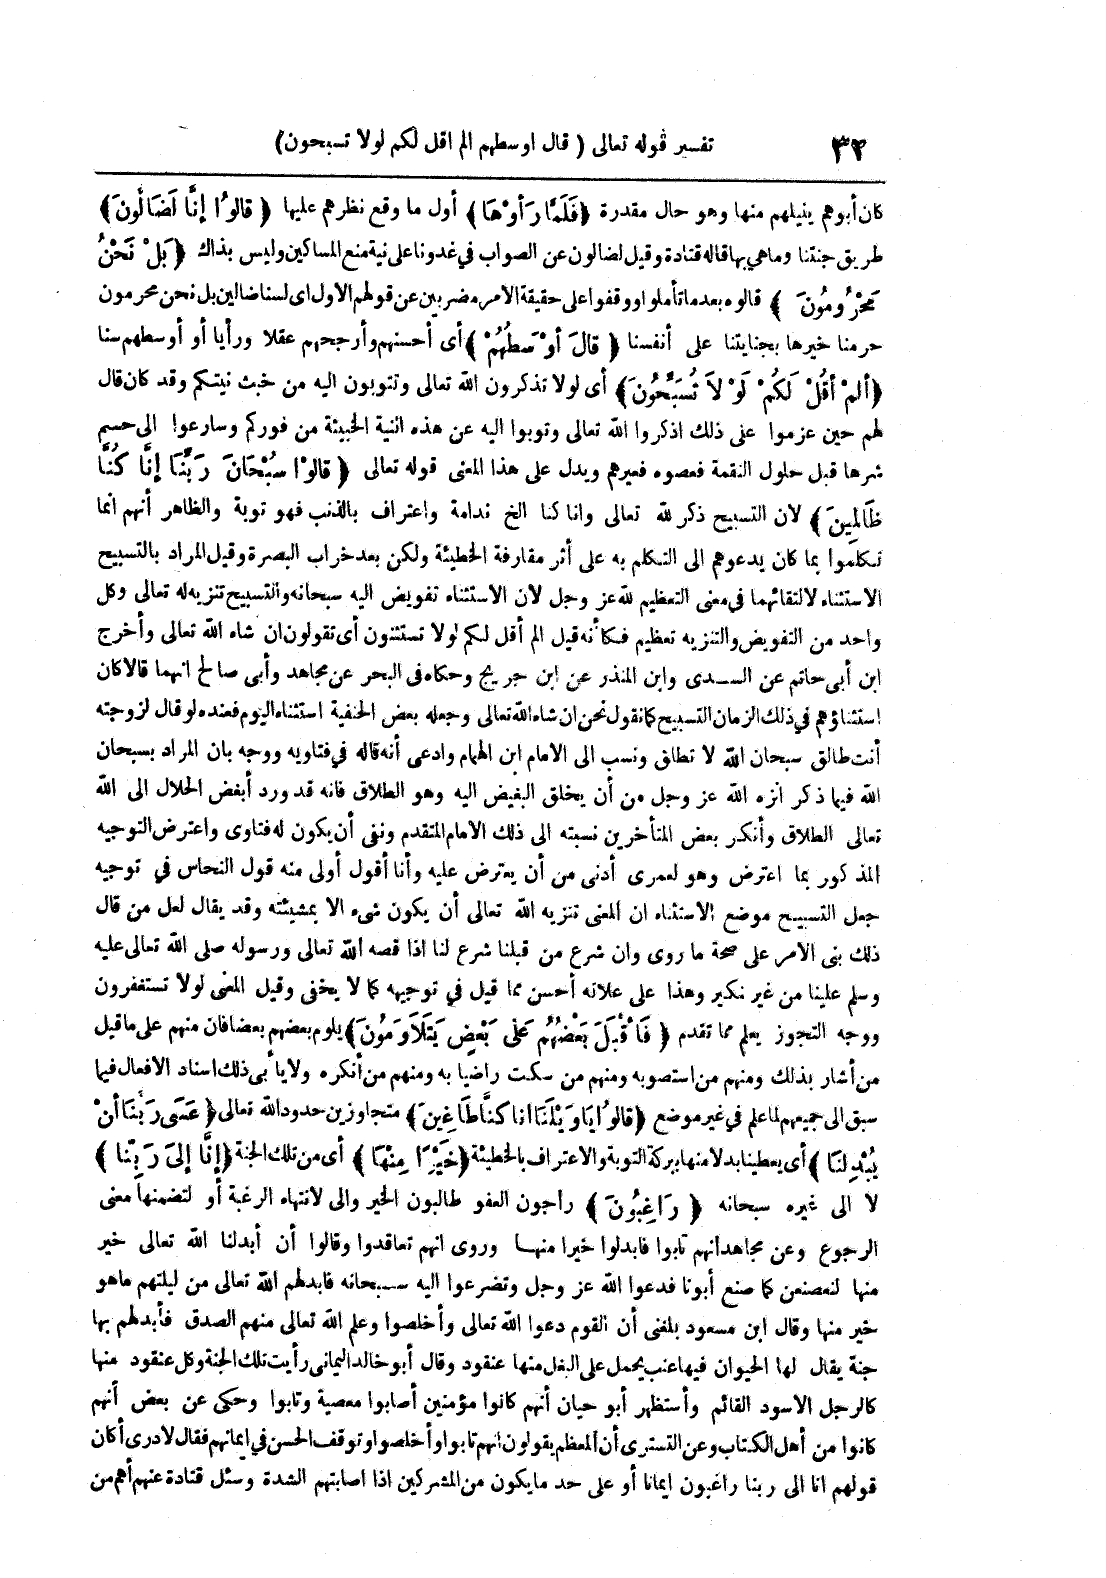 ٣٢ تفسير قوله تعالى ( قال اوسطهم الم اقل لكم لولا تسبحون)
كان أبوهم ينيلهم منها وهو حال مقدرة ﴿فَلَمَّا رَأَوْهَا﴾ أول ما وقع نظرهم عليها ﴿ قالُوا إنَّا لَضَالُّونَ﴾
طريق جنتنا وماهي بها قاله قتادة وقيل لضالون عن الصواب في غدونا على نية منع المساكين وليس بذاك ﴿بَلْ نَحْنُ
مَحْرُومُونَ ﴾ قالوه بعدما تأملوا ووقفوا على حقيقة الامر مضربين عن قولهم الاول اى لسنا ضالين بل نحن محرمون
حرمنا خيرها بجنايتنا على أنفسنا ﴿ قالَ أوْسَطُهُمْ ﴾ أى أحسنهم وأرجحهم عقلا ورأيا أو أوسطهم سنا
﴿ألَمْ أقُلْ لَكُمْ لَوْ لاَ تُسَبِّحُونَ﴾ أى لولا تذكرون الله تعالى وتتوبون اليه من خبث نيتكم وقد كان قال
لهم حين عزموا على ذلك اذكروا الله تعالى وتوبوا اليه عن هذه النية الخبيثة من فوركم وسارعوا الى حسم
شرها قبل حلول النقمة فعصوه فعيرهم ويدل على هذا المعنى قوله تعالى ﴿ قالُوا سُبْحَانَ رَبِّنَا إنَّا كُنَّا
ظَالِمِينَ ﴾ لان التسبيح ذكر لله تعالى وانا كنا الخ ندامة واعتراف بالذنب فهو توبة والظاهر أنهم انما
تكلموا بما كان يدعوهم الى التكلم به على أثر مقارفة الخطيئة ولكن بعد خراب البصرة وقيل المراد بالتسبيح
الاستثناء لالتقائهما في معنى التعظيم لله عز وجل لان الاستثناء تفويض اليه سبحانه والتسبيح تنزيه له تعالى وكل
واحد من التفويض والتنزيه تعظيم فكأنه قيل الم أقل لكم لولا تستثنون أى تقولون ان شاء الله تعالى وأخرج
ابن أبى حاتم عن السدى وابن المنذر عن ابن جريج وحكاه في البحر عن مجاهد وأبى صالح انهما قالا كان
استثناؤهم في ذلك الزمان التسبيح كما نقول نحن ان شاء الله تعالى وجعله بعض الحنفية استثناء اليوم فعنده لو قال لزوجته
أنت طالق سبحان الله لا تطلق ونسب الى الامام ابن الهمام وادعى أنه قاله في فتاويه ووجه بان المراد بسبحان
الله فيما ذكر أنزه الله عز وجل من أن يخلق البغيض اليه وهو الطلاق فانه قد ورد أبغض الحلال الى الله
تعالى الطلاق وأنكر بعض المتأخرين نسبته الى ذلك الامام المتقدم ونفى أن يكون له فتاوى واعترض التوجيه
المذكور بما اعترض وهو لعمرى أدنى من أن يعترض عليه وأنا أقول أولى منه قول النحاس في توجيه
جعل التسبيح موضع الاستثناء ان المعنى تنزيه الله تعالى أن يكون شىء الا بمشيئته وقد يقال لعل من قال
ذلك بنى الامر على صحة ما روى وان شرع من قبلنا شرع لنا اذا قصه الله تعالى ورسوله صلى الله تعالى عليه
وسلم علينا من غير نكير وهذا على علاته أحسن مما قيل في توجيهه كما لا يخفى وقيل المعنى لولا تستغفرون
ووجه التجوز يعلم مما تقدم ﴿ فَأقْبَلَ بَعْضُهُمْ عَلَى بَعْضٍ يَتَلَاوَمُونَ﴾ يلوم بعضهم بعضا فان منهم على ما قيل
من أشار بذلك ومنهم من استصوبه ومنهم من سكت راضيا به ومنهم من أنكره ولا يأبى ذلك اسناد الافعال فيما
سبق الى جميعهم لما علم في غير موضع ﴿قالُوا يَاوَيْلَنَا انا كنَّا طَاغِينَ﴾ متجاوزين حدود الله تعالى ﴿عَسَى رَبُّنَا أنْ
يُبْدِلنَا﴾ أى يعطينا بدلا منها ببركة التوبة والاعتراف بالخطيئة ﴿خَيْرًا مِنْهَا﴾ أى من تلك الجنة ﴿إنَّا إلىَ رَبِّنَا ﴾
لا الى غيره سبحانه ﴿ رَاغِبُونَ ﴾ راجون العفو طالبون الخير والى لانتهاء الرغبة أو لتضمنها معنى
الرجوع وعن مجاهد انهم تابوا فابدلوا خيرا منها وروى انهم تعاقدوا وقالوا أن أبدلنا الله تعالى خير
منها لنصنعن كما صنع أبونا فدعوا الله عز وجل وتضرعوا اليه سبحانه فابدلهم الله تعالى من ليلتهم ماهو
خير منها وقال ابن مسعود بلغنى أن القوم دعوا الله تعالى وأخلصوا وعلم الله تعالى منهم الصدق فأبدلهم بها
جنة يقال لها الحيوان فيها عنب يحمل على البغل منها عنقود وقال أبو خالد اليمانى رأيت تلك الجنة وكل عنقود منها
كالرجل الاسود القائم وأستظهر أبو حيان أنهم كانوا مؤمنين أصابوا معصية وتابوا وحكى عن بعض أنهم
كانوا من أهل الكتاب وعن التسترى أن المعظم يقولون انهم تابوا وأخلصوا وتوقف الحسن في ايمانهم فقال لا درى أكان
قولهم انا الى ربنا راغبون ايمانا أو على حد ما يكون من المشركين اذا اصابتهم الشدة وسئل قتادة عنهم أهم من